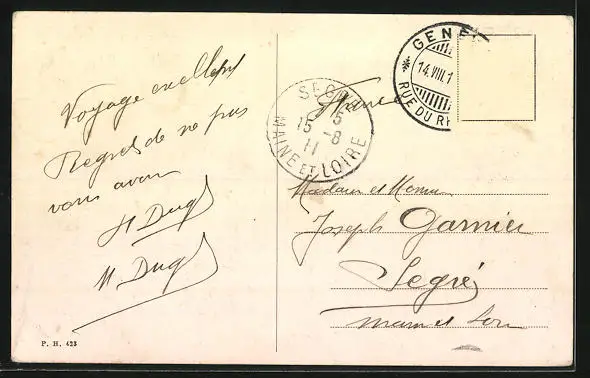 Voyage excellent
Regrets de ne pas
vous avoir
H Dugl
M Dugl
P. H. 423
SEGRÉ
15
15 -8
11
MAINE ET LOIRE
GENE
14.VIII.1
RUE DU RH
France
Madame et Monsieur
Joseph Garnier
Segré
Maine et Loire